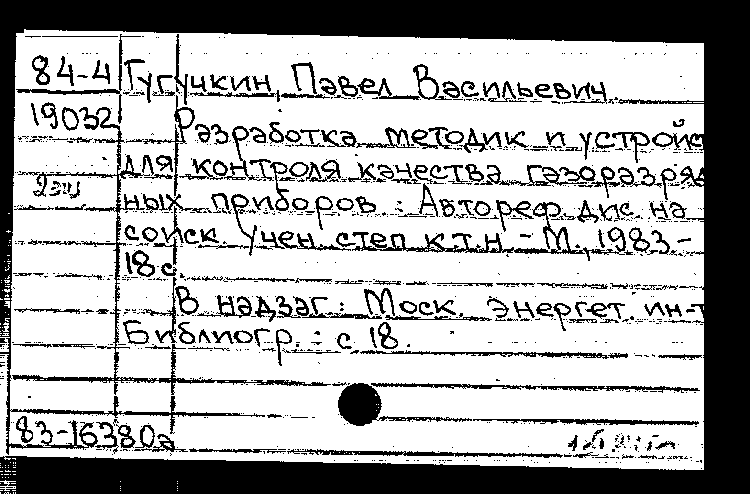 84-4 Гугучкин, Павел Васильевич.
19032 Разработка методик и устройс
для контроля качества газоразря
2 экз ных приборов : Автореф. дис. на
соиск. учен. степ. к.т.н. - М., 1983 -
18 с.
В надзаг.: Моск. энергет. ин-т
Библиогр.: с 18.
83-16380а